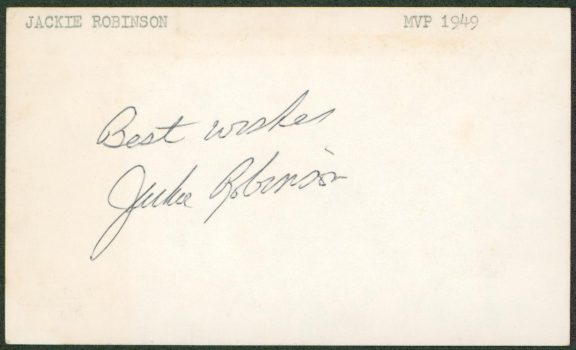 JACKIE ROBINSON MVP 1949
Best wishes
Jackie Robinson